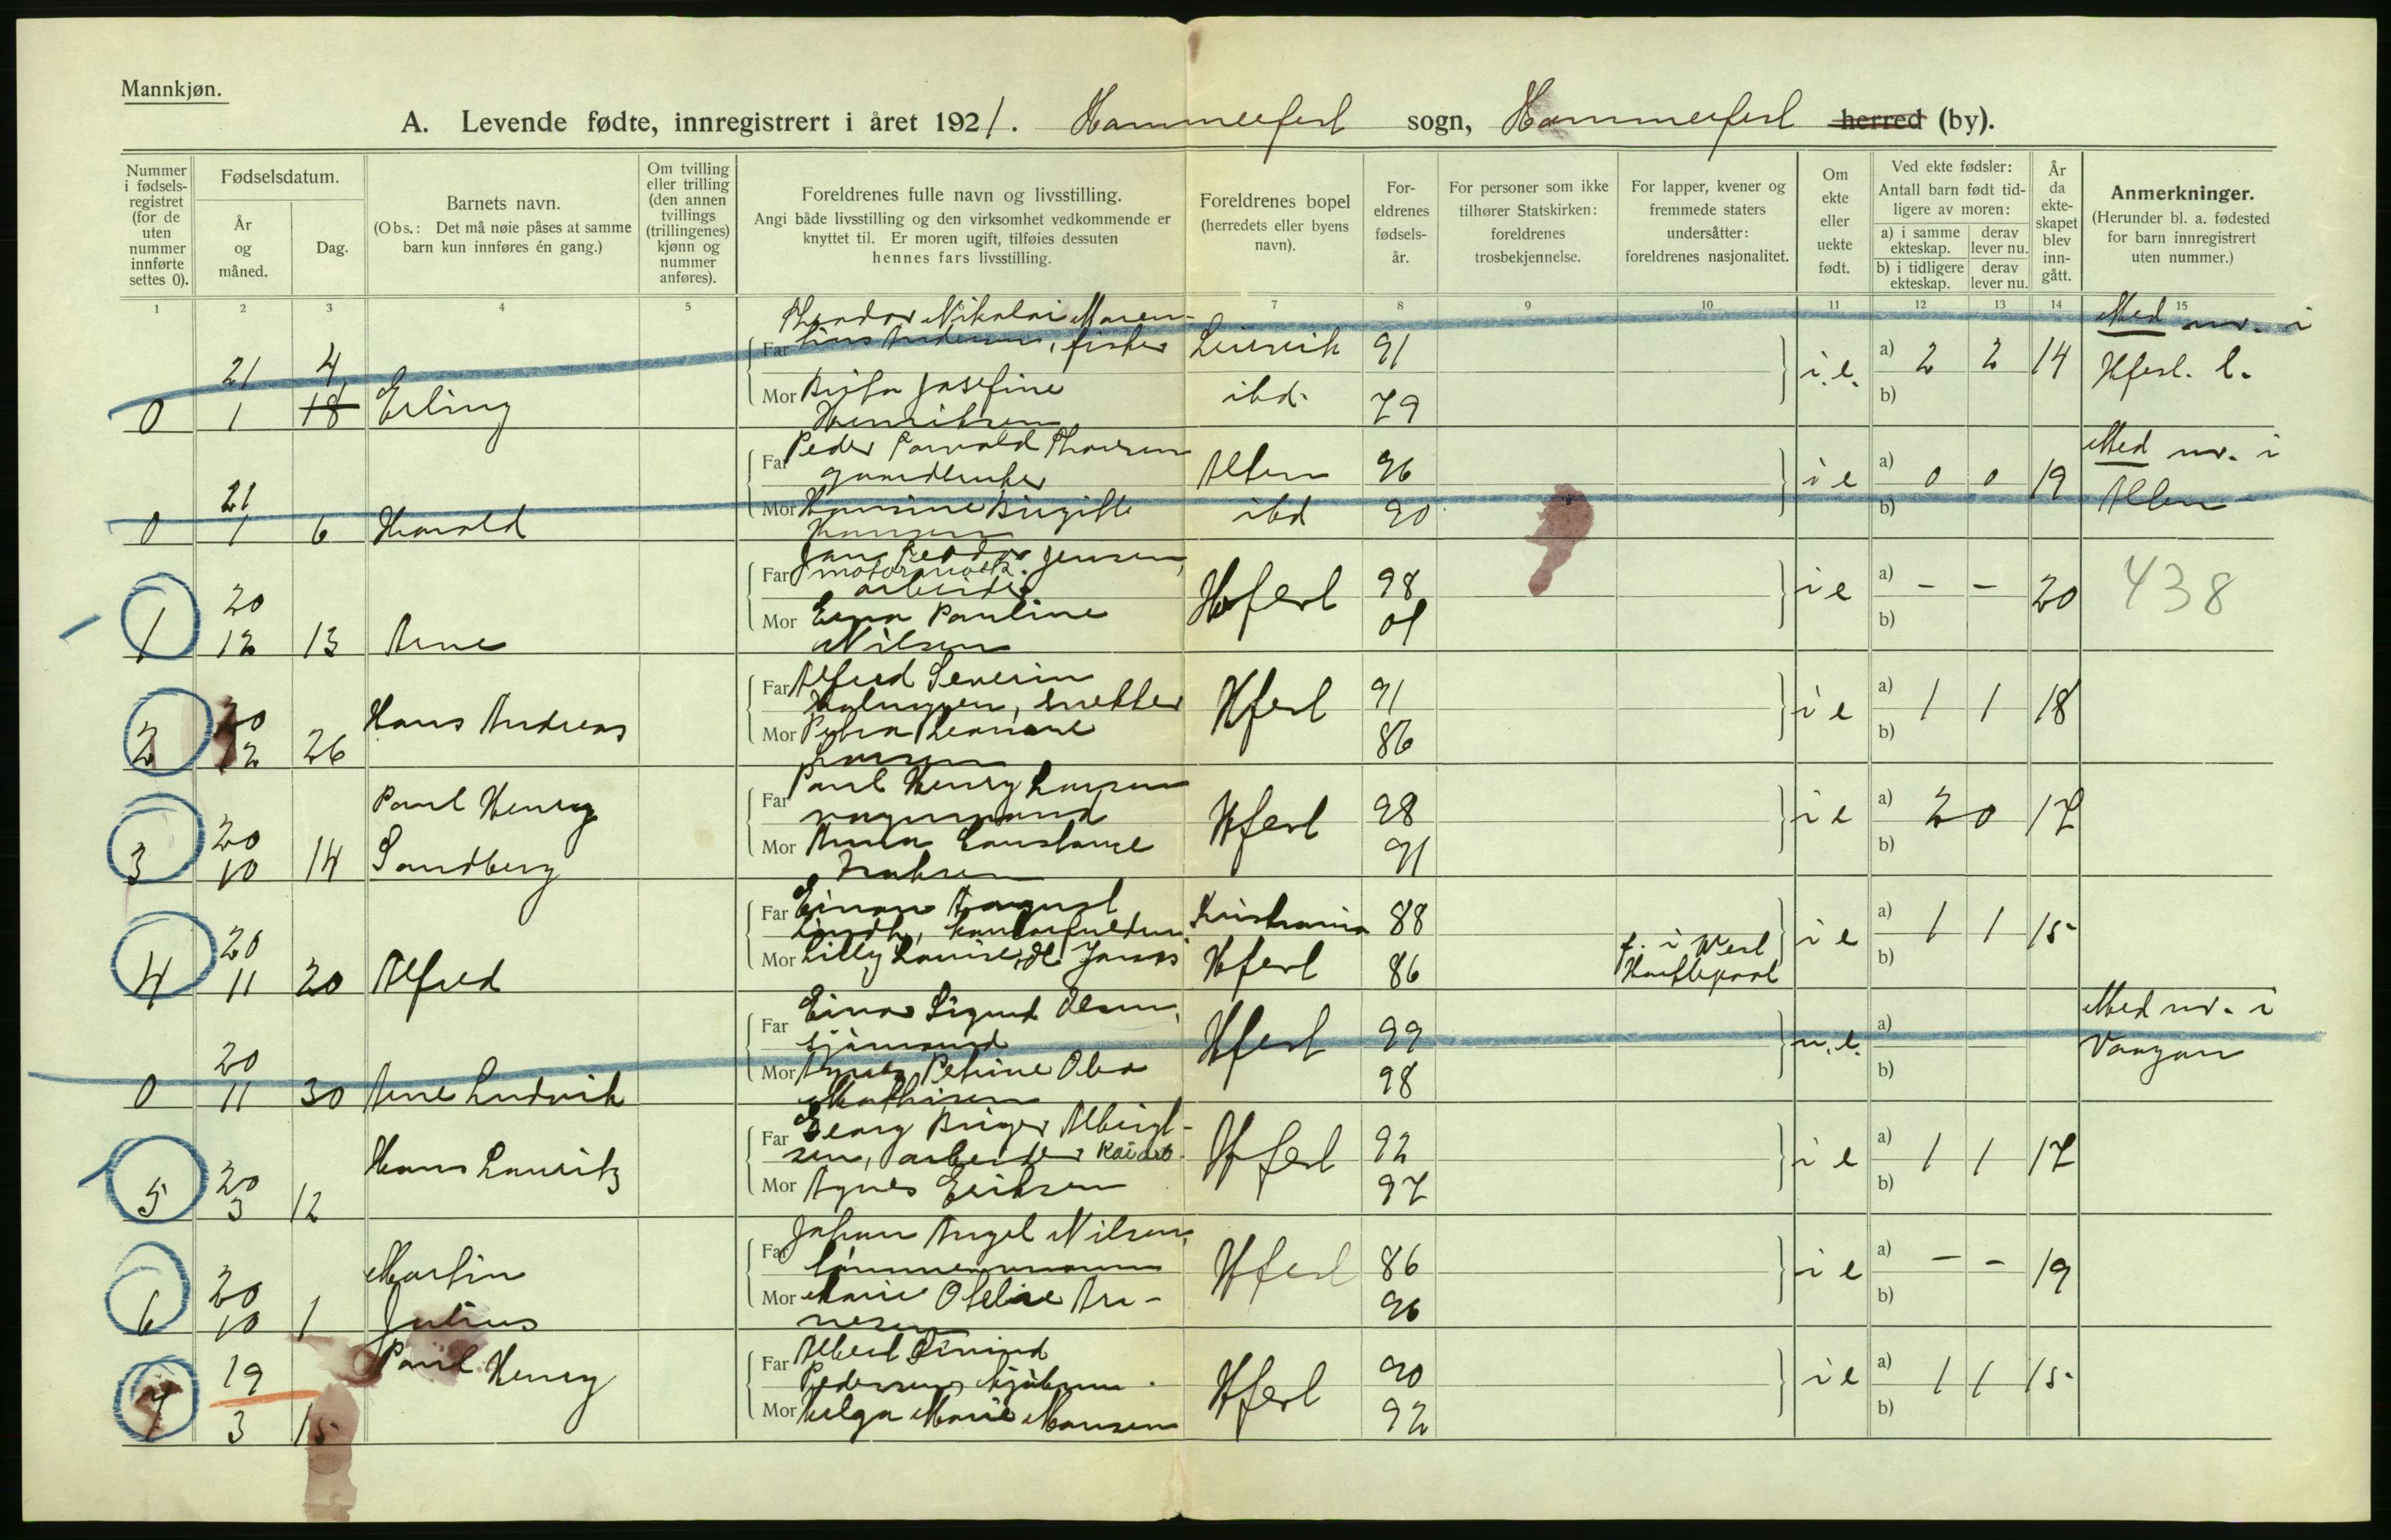 Mannkjøn.
A. Levende fødte, innregistrert i året 1921. Hammerfest sogn, Hammerfest herred (by).
Nummer i fødsels-registret (for de uten nummer innførte settes 0).
Fødselsdatum.
År og måned.
Dag.
Barnets navn.
(Obs.: Det må nøie påses at samme barn kun innføres én gang.)
Om tvilling eller trilling (den annen tvillings (trillingenes) kjønn og nummer anføres).
Foreldrenes fulle navn og livsstilling.
Angi både livsstilling og den virksomhet vedkommende er knyttet til. Er moren ugift, tilføies dessuten hennes fars livsstilling.
Foreldrenes bopel (herredets eller byens navn).
For-eldrenes fødsels-år.
For personer som ikke tilhører Statskirken: foreldrenes trosbekjennelse.
For lapper, kvener og fremmede staters undersåtter: foreldrenes nasjonalitet.
Om ekte eller uekte født.
Ved ekte fødsler:
Antall barn født tid-ligere av moren:
a) i samme ekteskap. derav lever nu.
b) i tidligere ekteskap. derav lever nu.
År da ekte-skapet blev inn-gått.
Anmerkninger.
(Herunder bl. a. fødested for barn innregistrert uten nummer.)
1 2 3 4 5 7 8 9 10 11 12 13 14 15
0 21 1 4 18 Erling
Far Theodor Nikolai Maren-
fisker Leirvik 91
Mor Josefine
Henriksen ibd. 79
i. e. a) 2 2 14 b)
Med nr. i
Hfest. l.
0 21 1 6 Harald
Far Peder Thorsen
gaardbruker Alten 96
Mor Hansine Birgitte
Hansen ibd 90
i e a) 0 0 19 b)
Med nr. i
Alten
1 20 12 13 Arne
Far Jens Jensen,
arbeider Hfest 98
Mor Erna Pauline
Nilsen 01
i e a) - - 20 b)
438
2 20 12 26 Hans Andreas
Far Alfred Severin
snekker Hfest 91
Mor Petra
Larsen 86
i e a) 1 1 18 b)
3 20 10 14 Paul Henry
Sandberg
Far Paul Henry Larsen
vognmand Hfest 98
Mor Anna Constance
Isaksen 91
i e a) 2 0 17 b)
4 20 11 20 Alfred
Far Einar August
Kristiania 88
Mor Lilly Louise Hfest 86
f. i West
Hartlepool
i e a) 1 1 15 b)
0 20 11 30 Arne Ludvik
Far Einar Sigurd Olsen,
sjømand Hfest 99
Mor Agnes Petrine Olea
Mathisen 98
u. e. a) b)
Med nr. i
Vaagan
5 20 3 12 Hans Lauritz
Far Georg Birger Albrigt-
sen, arbeider Kaiarb. Hfest 92
Mor Agnes Eriksen 97
i e a) 1 1 17 b)
6 20 10 1 Martin
Julius
Far Johan Angel Nilsen,
tömmermann Hfest 86
Mor Marie Otelise Ar-
nesen 96
i e a) - - 19 b)
7 19 3 15 Paul Henry
Far Albert Eivind
Pedersen Hfest 90
Mor Helga Marie Hansen 92
i e a) 1 1 15 b)